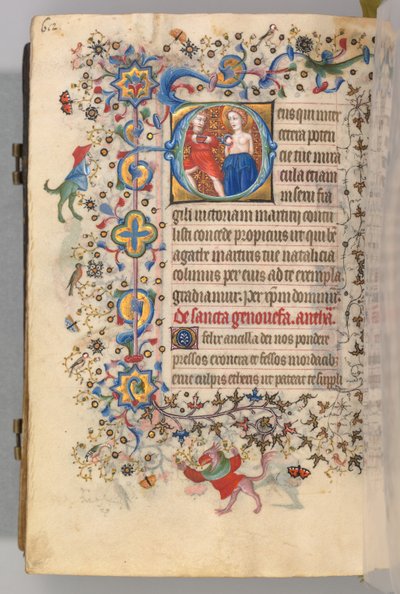 Deus qui inter
cetera poten
cie tue mira
cula etiam
in sexu fra
gili uictoriam martirij contu
listi concede propicius ut qui be
agathe martiris tue natalicia
colimus per eius ad te exempla
gradiamur. Per xpm dominum.
De sancta genouefa. antha.
O felix ancilla dei nos pondere
pressos exonera et fessos mordacib
erue culpis ut pateat te suppli